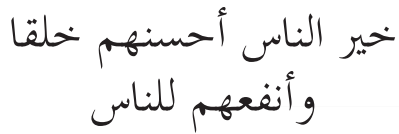 خير الناس أحسنهم خلقا
وأنفعهم للناس